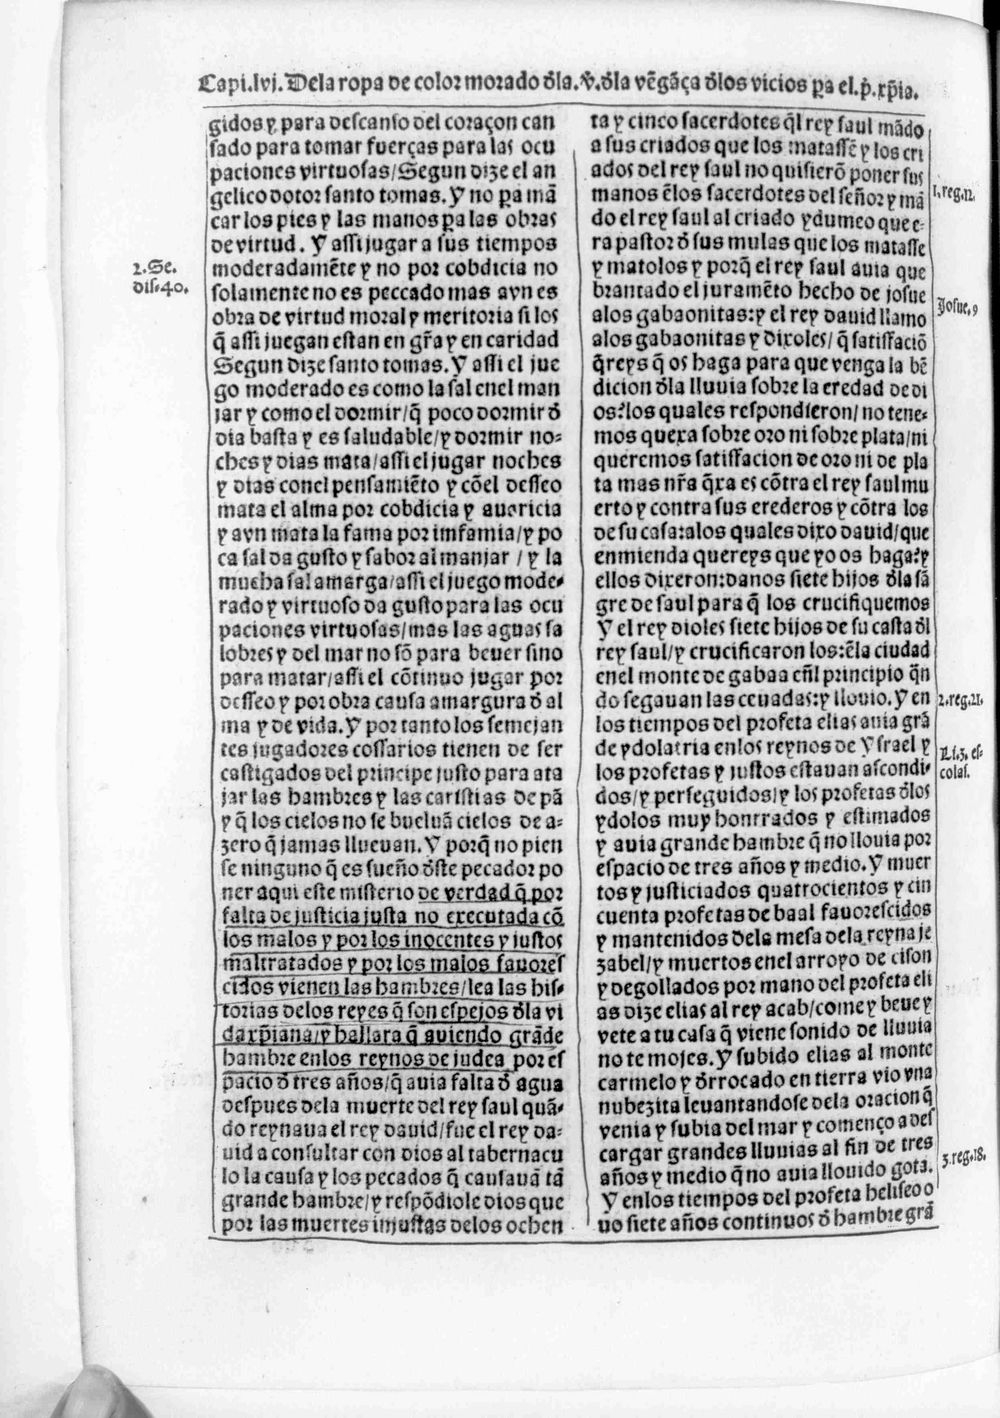 Capi.lvj. Dela ropa de color morado đla.ꝟ.đla vẽgãça đlos vicios ꝑa el.ꝓ́.xp̃ia.
gidos y para descanso del coraçon can
sado para tomar fuerças para las ocu
paciones virtuosas/Segun dize el an
gelico dotor santo tomas. Y no ꝑa mã
car los pies y las manos ꝑa las obras
de virtud. Y assi jugar a sus tiempos
moderadamẽte y no por cobdicia no
solamente no es peccado mas avn es
obra de virtud moral y meritoria si los
q̃ assi juegan estan en gr̃a y en caridad
Segun dize santo tomas. Y assi el jue
go moderado es como la sal enel man
jar y como el dormir/q̃ poco dormir đ
dia basta y es saludable/y dormir no-
ches y dias mata/assi el jugar noches
y dias conel pensamiẽto y cõel desseo
mata el alma por cobdicia y auaricia
y avn mata la fama por imfamia/y po
ca sal da gusto y sabor al manjar / y la
mucha sal amarga/assi el juego mode-
rado y virtuoso da gusto para las ocu
paciones virtuosas/mas las aguas sa
lobres y del mar no sõ para beuer sino
para matar/assi el cõtinuo jugar por
desseo y por obra causa amargura đ al
ma y de vida. Y por tanto los semejan
tes jugadores cossarios tienen de ser
castigados del principe justo para ata
jar las hambres y las caristias de pã
y q̃ los cielos no se bueluã cielos de a-
zero q̃ jamas llueuan. Y porq̃ no pien
se ninguno q̃ es sueño đste pecador po
ner aqui este misterio de verdad q̃ por
falta de justicia justa no executada cõ
los malos y por los inocentes y justos
maltratados y por los malos fauores
cidos vienen las hambres/lea las his-
torias delos reyes q̃ son espejos đla vi
da xp̃iana/y hallara q̃ auiendo grãde
hambre enlos reynos de judea por es
pacio đ tres años/q̃ auia falta đ agua
despues dela muerte del rey saul quã-
do reynaua el rey dauid/fue el rey da-
uid a consultar con dios al tabernacu
lo la causa y los pecados q̃ causauã tã
grande hambre/y respõdiole dios que
por las muertes injustas delos ochen
2.Se.
dis.40.
ta y cinco sacerdotes q̃l rey saul mãdo
a sus criados que los matassẽ y los cri
ados del rey saul no quisierõ poner sus
manos ẽlos sacerdotes del señor y mã
do el rey saul al criado ydumeo que e-
ra pastor đ sus mulas que los matasse
y matolos y porq̃ el rey saul auia que
brantado el juramẽto hecho de josue
alos gabaonitas:y el rey dauid llamo
alos gabaonitas y dixoles/ q̃ satiffaciõ
q̃reys q̃ os haga para que venga la bẽ
dicion đla lluuia sobre la eredad de di
os:los quales respondieron/ no tene-
mos quexa sobre oro ni sobre plata/ni
queremos satiffacion de oro ni de pla
ta mas nr̃a q̃xa es cõtra el rey saul mu
erto y contra sus erederos y cõtra los
de su casa:alos quales dixo dauid/que
enmienda quereys que yo os haga:y
ellos dixeron:danos siete hijos đla sã
gre de saul para q̃ los crucifiquemos
Y el rey dioles siete hijos de su casta đl
rey saul/y crucificaron los:ẽla ciudad
enel monte de gabaa eñl principio q̃n
do segauan las ceuadas:y llouio. Y en
los tiempos del profeta elias auia grã
de ydolatria enlos reynos de Ysrael y
los profetas y justos estauan ascondi-
dos/y perseguidos/y los profetas đlos
ydolos muy honrrados y estimados
y auia grande hambre q̃ no llouia por
espacio de tres años y medio. Y muer
tos y justiciados quatrocientos y cin
cuenta profetas de baal fauorescidos
y mantenidos dela mesa dela reyna je
zabel/y muertos enel arroyo de cison
y degollados por mano del profeta eli
as dize elias al rey acab/come y beue y
vete a tu casa q̃ viene sonido de lluuia
no te mojes. Y subido elias al monte
carmelo y đrrocado en tierra vio vna
nubezita leuantandose dela oracion q̃
venia y subia del mar y començo a des
cargar grandes lluuias al fin de tres
años y medio q̃ no auia llouido gota.
Y enlos tiempos del profeta heliseo o
uo siete años continuos đ hambre grã
1.reg.22.
Josue.9
2.reg.21.
colas.
3.reg.18.